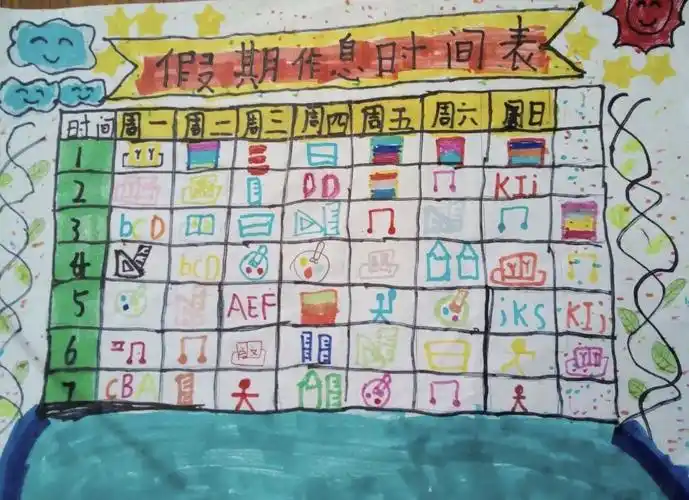 假期作息时间表
时间 周一 周二 周三 周四 周五 周六 星日
1 YY
2 DD KIi
3 bCD
4 bCD YY
5 AEF jKS KIj
6 EEE EEE YY
7 CBA